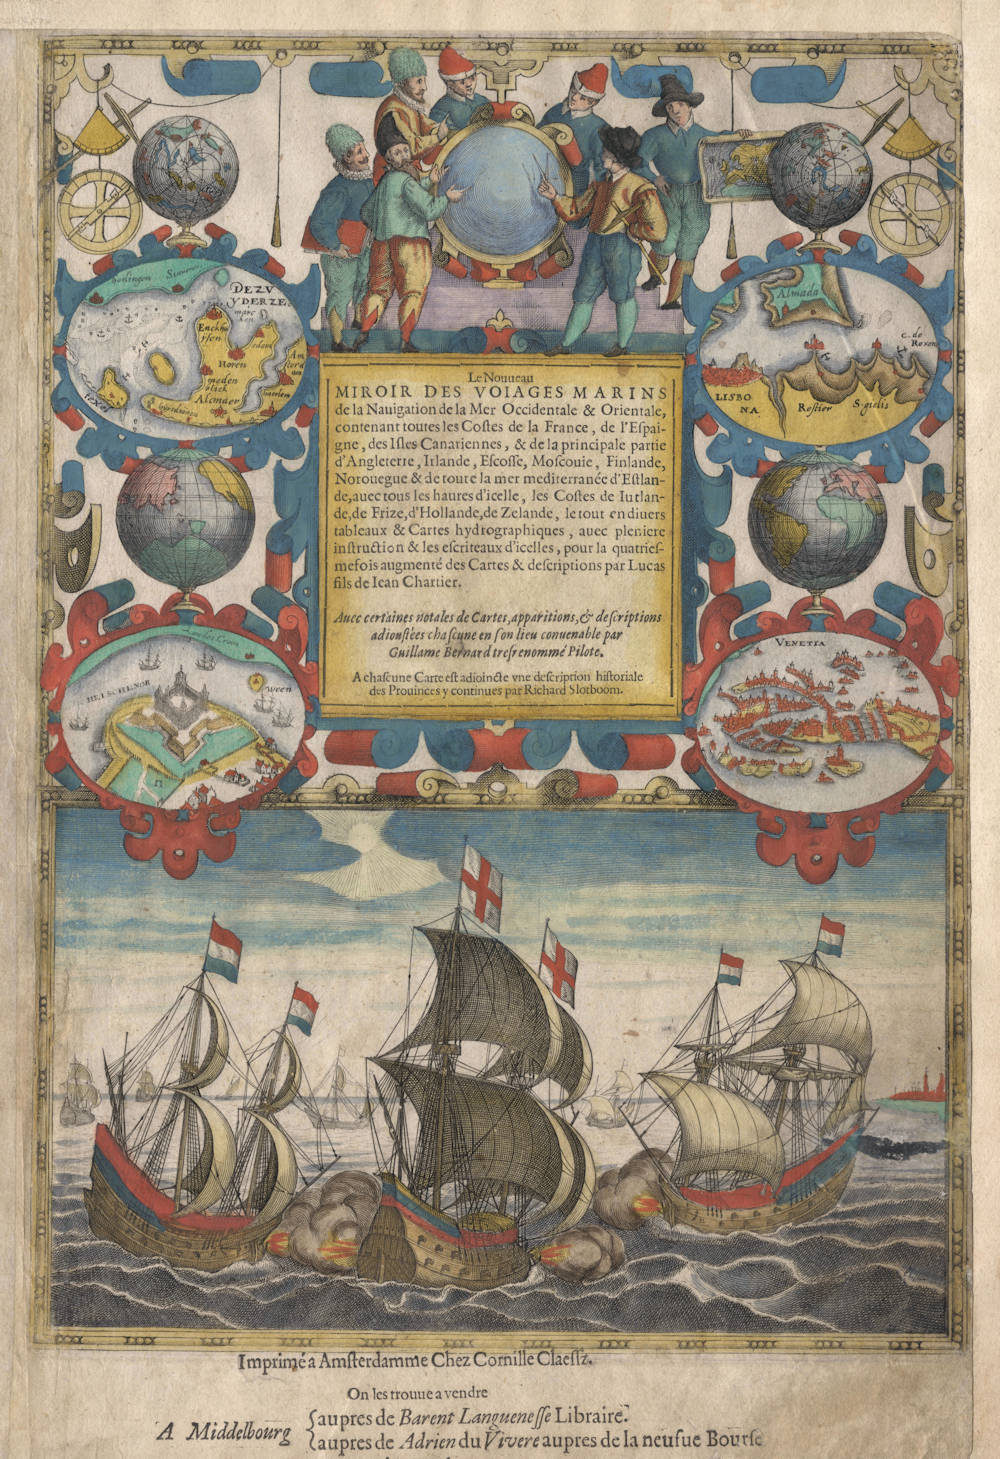 Harlingen
Stavoren
DEZV
YDERZE
Enckhuysen
Horen
edam
meden
blick
Alcmaer
Amsterdam
haerlem
texel
Almada
C. de
Roxen
LISBO
NA
Rostier
S. gielis
Le Nouueau
MIROIR DES VOIAGES MARINS
de la Nauigation de la Mer Occidentale & Orientale,
contenant toutes les Coſtes de la France, de l'Eſpai-
gne, des Iſles Canariennes, & de la principale partie
d'Angleterre, Irlande, Eſcoſſe, Moſcouie, Finlande,
Norouegue & de toute la mer mediterranée d'Eſtlan-
de, auec tous les haures d'icelle, les Coſtes de Iutlan-
de, de Frize, d'Hollande, de Zelande, le tout en diuers
tableaux & Cartes hydrographiques, auec pleniere
inſtruction & les eſcriteaux d'icelles, pour la quatrieſ-
mefois augmenté des Cartes & deſcriptions par Lucas
fils de Iean Chartier.
Auec certaines notales de Cartes, apparitions, & deſcriptions
adiouſtées chaſcune en ſon lieu conuenable par
Guillame Bernard treſrenommé Pilote.
A chaſcune Carte eſt adioincte vne deſcription hiſtoriale
des Prouinces y continues par Richard Slotboom.
Landes Croon
HELSCHENOR
Ween
VENETIA
Imprimé a Amſterdamme Chez Cornille Claeſſz.
On les trouue a vendre
A Middelbourg
aupres de Barent Langueneſſe Libraire.
aupres de Adrien du Vivere aupres de la neufue Bourſe